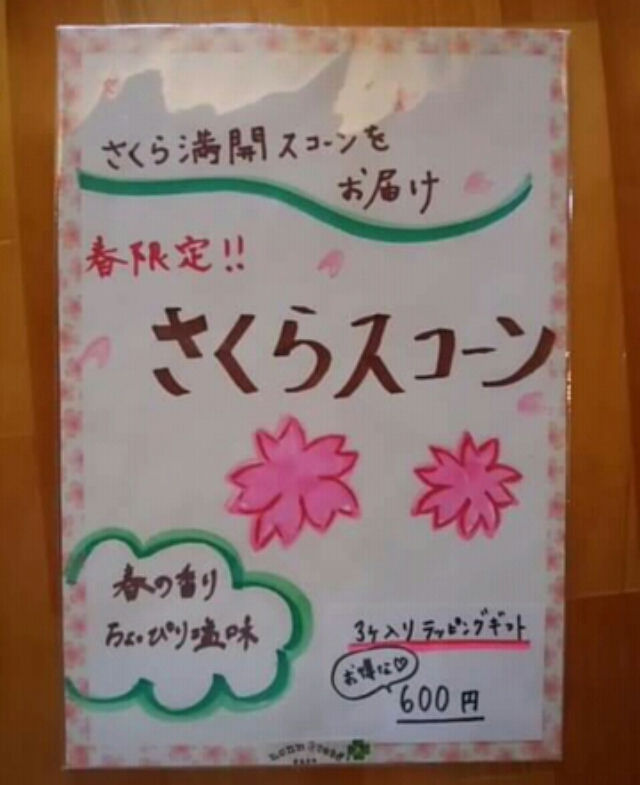 さくら満開スコーンを
お届け
春限定!!
さくらスコーン
春の香り
ちょっぴり塩味
3ヶ入りラッピングギフト
お得な♡
600円